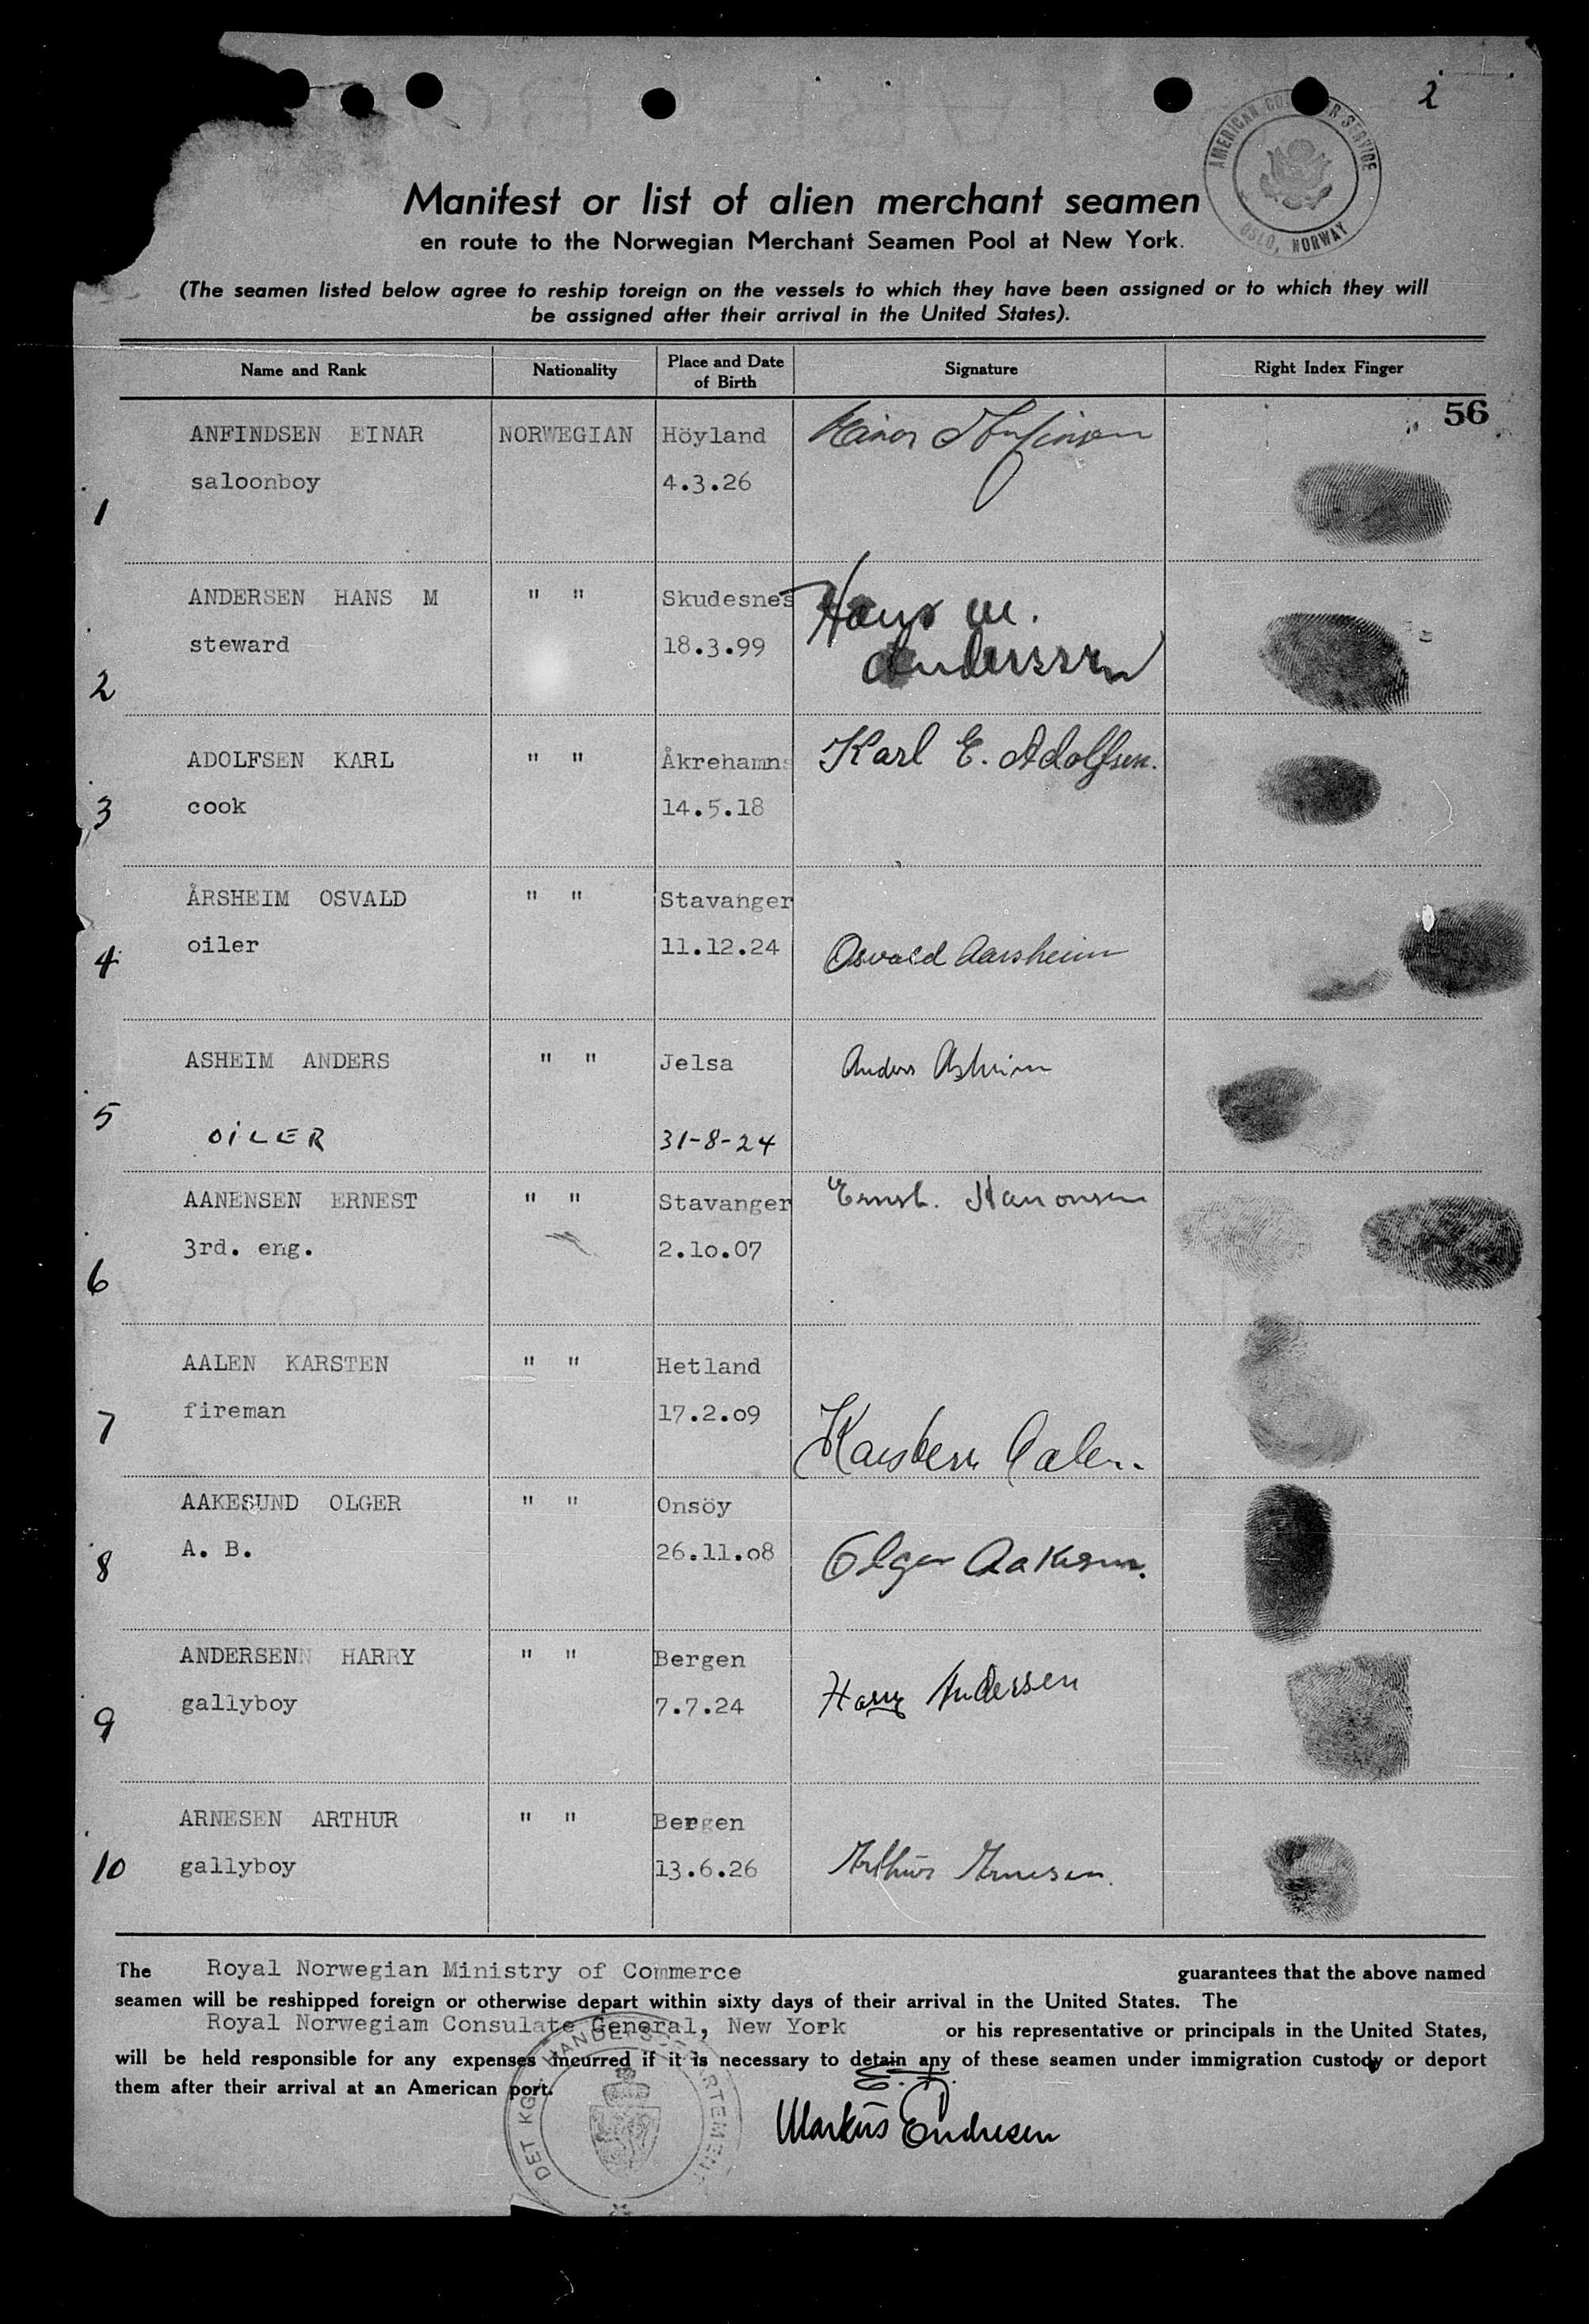 2
AMERICAN CON R SERVICE
OSLO, NORWAY
Manifest or list of alien merchant seamen
en route to the Norwegian Merchant Seamen Pool at New York.
(The seamen listed below agree to reship foreign on the vessels to which they have been assigned or to which they will
be assigned after their arrival in the United States).
Name and Rank Nationality Place and Date of Birth Signature Right Index Finger
56
ANFINDSEN EINAR NORWEGIAN Höyland Einar
saloonboy 4.3.26
1
ANDERSEN HANS M " " Skudesnes Hans M.
steward 18.3.99 Anderssen
2
ADOLFSEN KARL " " Åkrehamns Karl E. Adolfsen.
cook 14.5.18
3
ÅRSHEIM OSVALD " " Stavanger
oiler 11.12.24 Osvald Aarsheim
4
ASHEIM ANDERS " " Jelsa Anders Asheim
5
OiLER 31-8-24
AANENSEN ERNEST " " Stavanger Ernst.
3rd. eng. 2.1o.07
6
AALEN KARSTEN " " Hetland
fireman 17.2.o9
7 Karsten Aalen.
AAKESUND OLGER " " Onsöy
A. B. 26.11.o8 Olger
8
ANDERSENN HARRY " " Bergen
gallyboy 7.7.24 Harry Andersen
9
ARNESEN ARTHUR " " Bergen
gallyboy 13.6.26 Arthur Arnesen.
10
The Royal Norwegian Ministry of Commerce guarantees that the above named
seamen will be reshipped foreign or otherwise depart within sixty days of their arrival in the United States. The
Royal Norwegiam Consulate General, New York or his representative or principals in the United States,
will be held responsible for any expenses incurred if it is necessary to detain any of these seamen under immigration custody or deport
them after their arrival at an American port.
E. F.
Markus Endresen
DET KG HANDE ARTEMENT